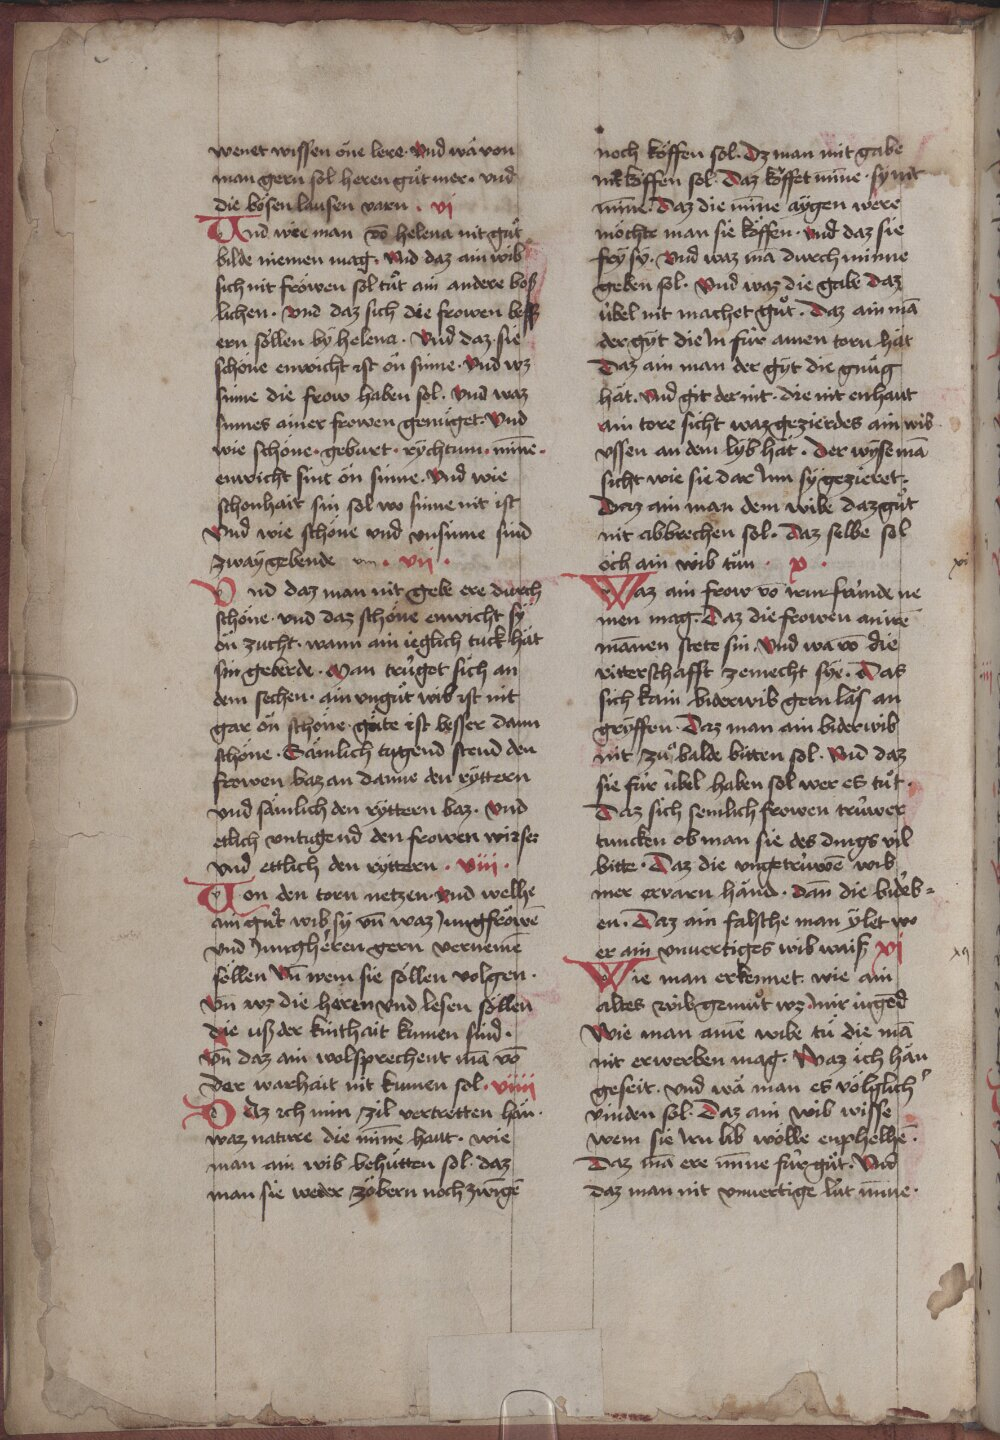 wenet wissen one lere. Vnd wa von
man gern sol heren gůt mer. vnd
die bösen laussen varn. vi
Vnd wie man vō helena nit gůt
bilde niemen mag. Vnd daz ain wib
sich nit fröwen sol tůt ain andere boß
lichen. Vnd daz sich die frowen bess
ern söllen by helena. Vnd daz sie
schöne enwicht ist ön sinne. Vnd wz
sinne die frow haben sol. Vnd waz
sinnes ainer frowen genůget. Vnd
wie schöne. geburt. rychtum. minē.
enwicht sint ön sinne. Vnd wie
schonhait sin sol wo sinne nit ist
Vnd wie schöne vnd vnsinne sind
zway gebende vn. vii.
Vnd daz man nit gebe ere durch
schöne. vnd daz schöne enwicht sy
ön zucht. wann ain ieglich tuck hät
sin geberde. Man trůget sich an
dem sechen. ain vngůt wib ist nit
gar ön schöne. gůte ist besser dann
schöne. Sämlich tugend stend den
frowen baz an danne den ryttern
vnd sämlich den ryttern baz. Vnd
etlich vntugend den frowen wirser
vnd ettlich den ryttern. viii.
Von den torn netzen. Vnd welhe
ain gůt wib sy vn̄ waz Jungfröwē
vnd Jungheren gern vernemē
söllen Vn̄ wem sie söllen volgen.
Vn̄ wz die heren vnd lesen söllen
die uß der kinthait kumen sind.
Vn̄ daz ain wolsprechent mā vō
der warhait nit kumen sol. viiii
Daz ich min zil vertretten hän.
waz nature die minē haut. wie
man ain wib behütten sol. daz
man sie weder zöbern noch zwingē
noch köffen sol. Dz man mit gabe
nit köffen sol. Daz köffet minē. sy nit
minē. Daz die minē aygen were
möchte man sie köffen. Vnd daz sie
fry sy. Vnd waz mā durch minne
geben sol. Vnd waz die gabe daz
übel nit machet gůt. Daz ain mā
der gyt die In für ainen torn hät
Daz ain man der gyt die gnůg
hät. Vnd git der nit. die nit enhaut
ain tore sicht waz gezierdes ain wib
vssen an dem lyb hät. Der wyse mā
sicht wie sie dar Inn sy gezieret.
Daz ain man dem wibe daz gůt
nit abbrechen sol. Daz selbe sol
öch ain wib tůn. x.
Waz ain frow vō irm fründe ne
men mag. Daz die frowen an irē
mānen stete sin. Vnd wa vō die
ritterschafft zernecht sye. Das
sich kain biderwib gern läs an
gryffen. Daz man ain biderwib
nit zů balde bitten sol. Vnd daz
sie für übel haben sol wer es tůt.
Daz sich semlich frowen trůwer
tuncken ob man sie des dings vil
bitte. Daz die vngetrůwē wib
mer ervarn händ. dan̄ die biderb=
en. Daz ain falsche man ylet wo
er ain vnuertiges wib waiß xi
Wie man erkennet. wie ain
altes wib gemůt wz. Inir iugēd
Wie man ainē wibe tů die mā
nit erwerben mag. Waz ich hän
geseit. vnd wä man es völliglich
vinden sol. Daz ain wib wisse
wem sie irn lib wölle enphelhē.
Daz mā ere minne für gůt. Vnd
daz man nit vnuertige lüt minne.
xi